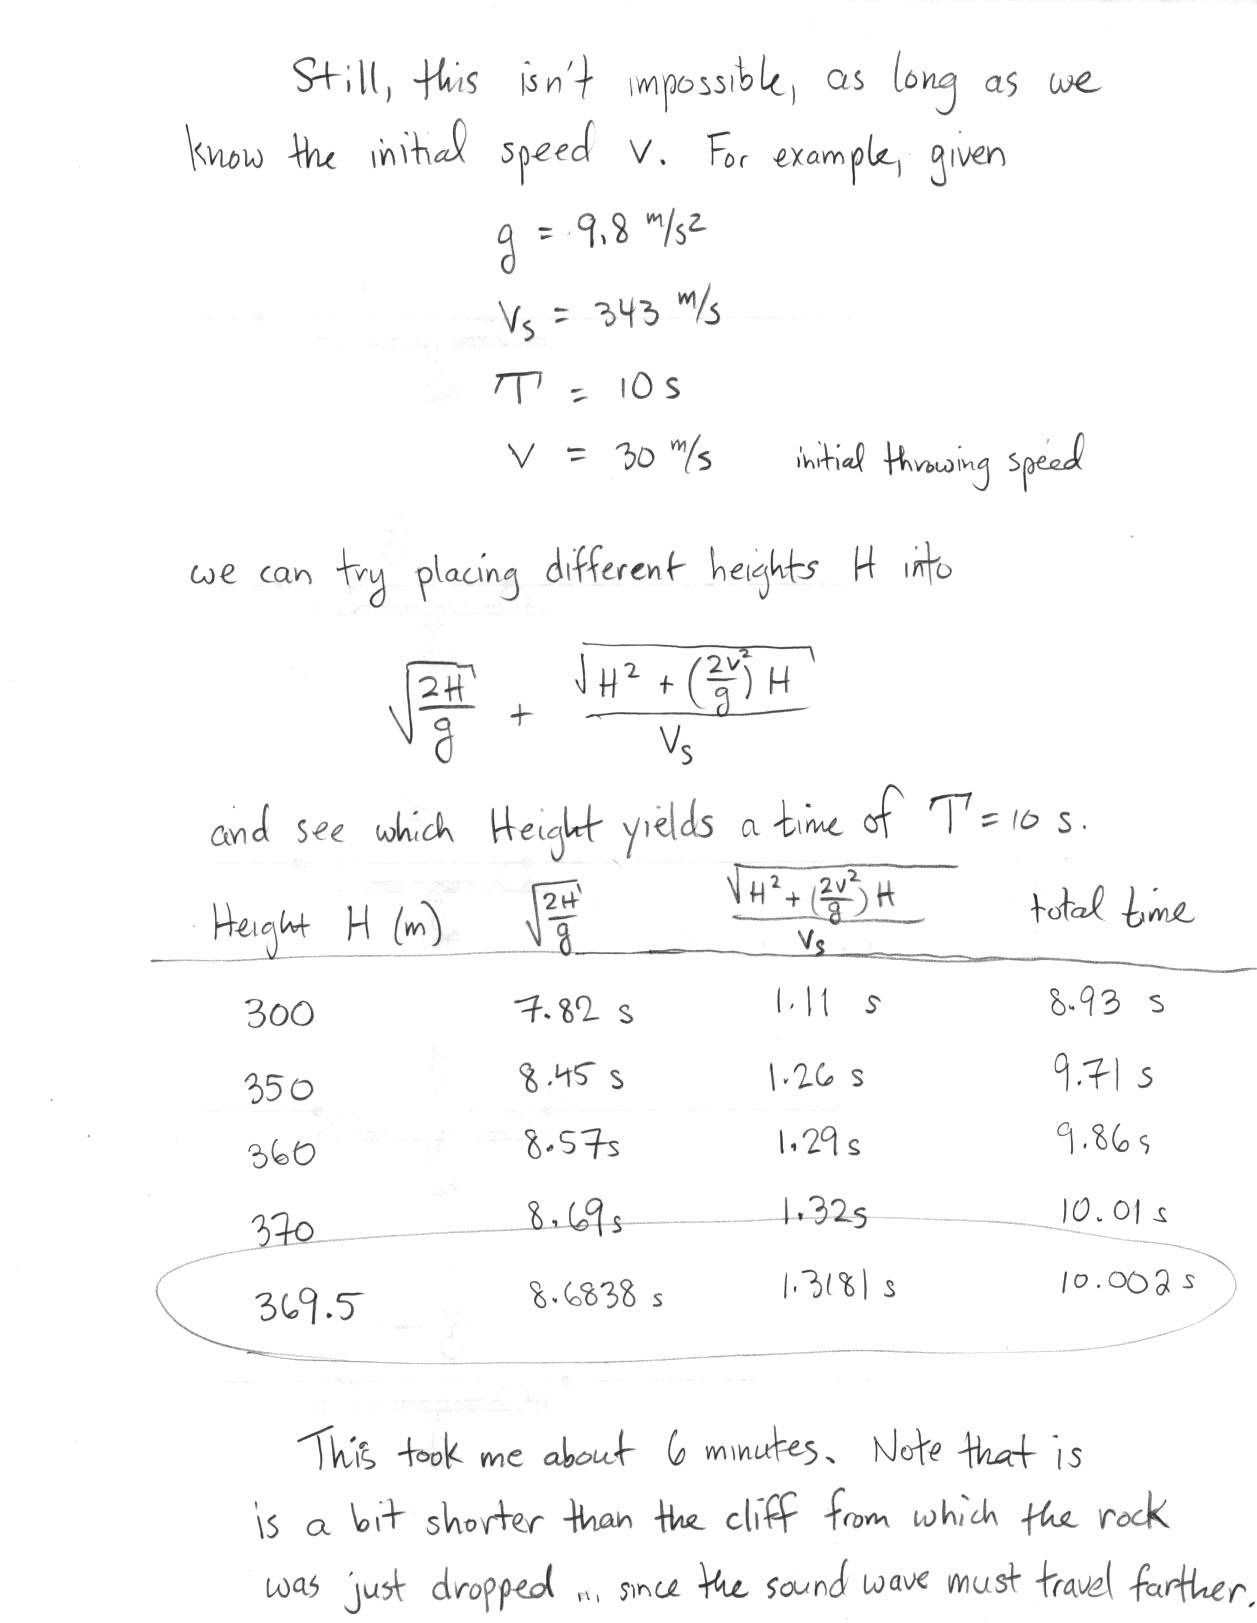 Still, this isn't impossible, as long as we
know the initial speed v. For example, given
g = 9.8 m/s²
Vs = 343 m/s
T = 10 s
V = 30 m/s initial throwing speed
we can try placing different heights H into
√(2H/g) + √(H² + (2v²/g) H) / Vs
and see which Height yields a time of T = 10 s.
Height H (m) √(2H/g) √(H² + (2v²/g) H) / Vs total time
300 7.82 s 1.11 s 8.93 s
350 8.45 s 1.26 s 9.71 s
360 8.57s 1.29 s 9.86 s
370 8.69 s 1.32s 10.01 s
369.5 8.6838 s 1.3181 s 10.002 s
This took me about 6 minutes. Note that is
is a bit shorter than the cliff from which the rock
was just dropped ... since the sound wave must travel farther.